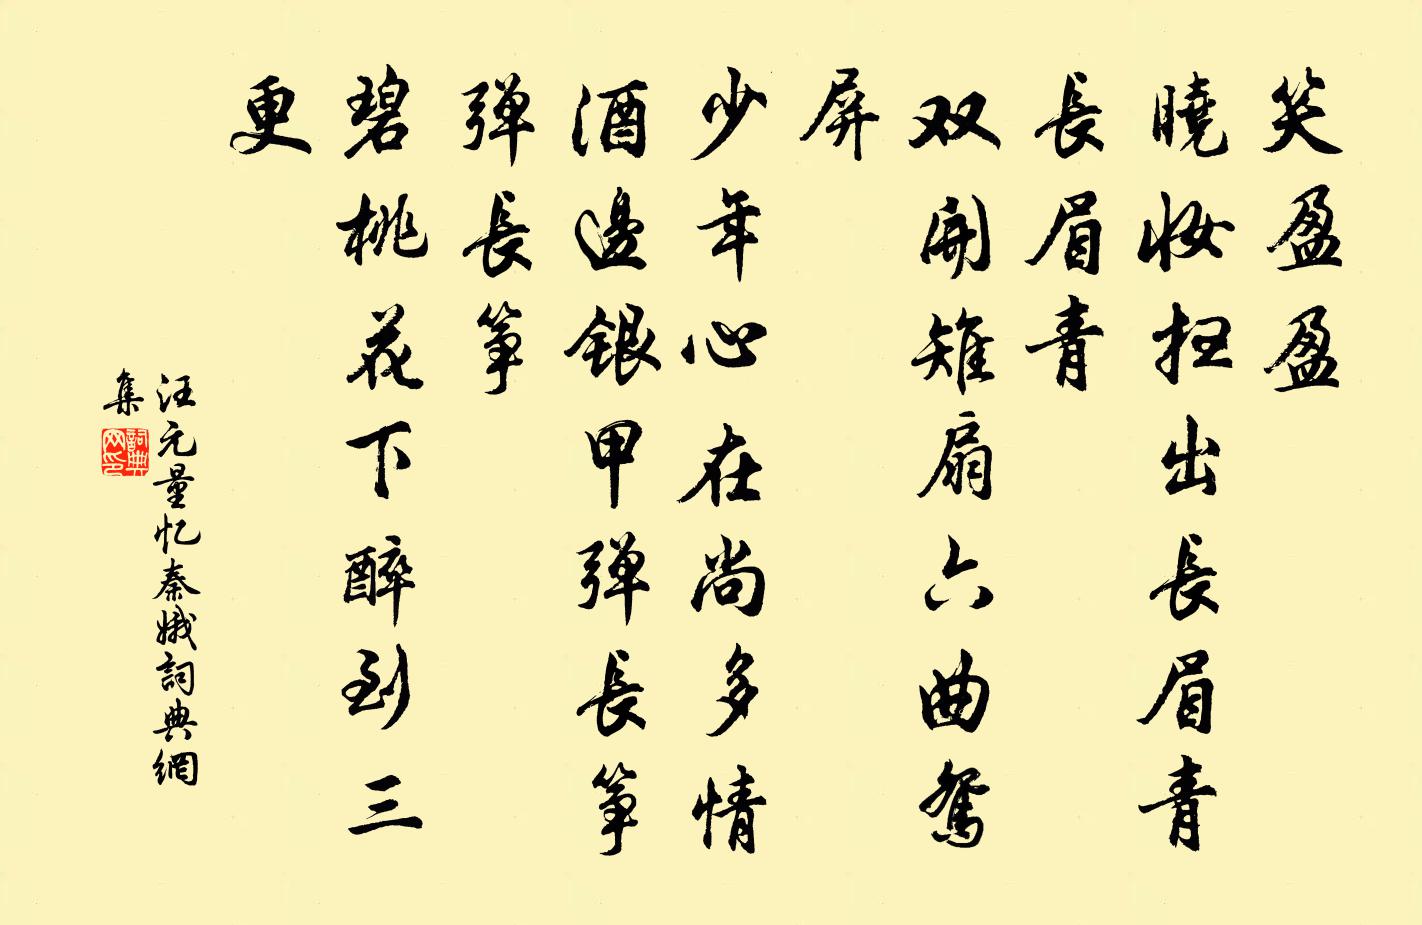 笑盈盈
曉妆扫出長眉青
長眉青
双開雉扇六曲鴛
屏
少年心在尚多情
酒邊銀甲弹長筝
弹長筝
碧桃花下醉到三
更
汪元量忆秦娥詞典網
集
詞典网印